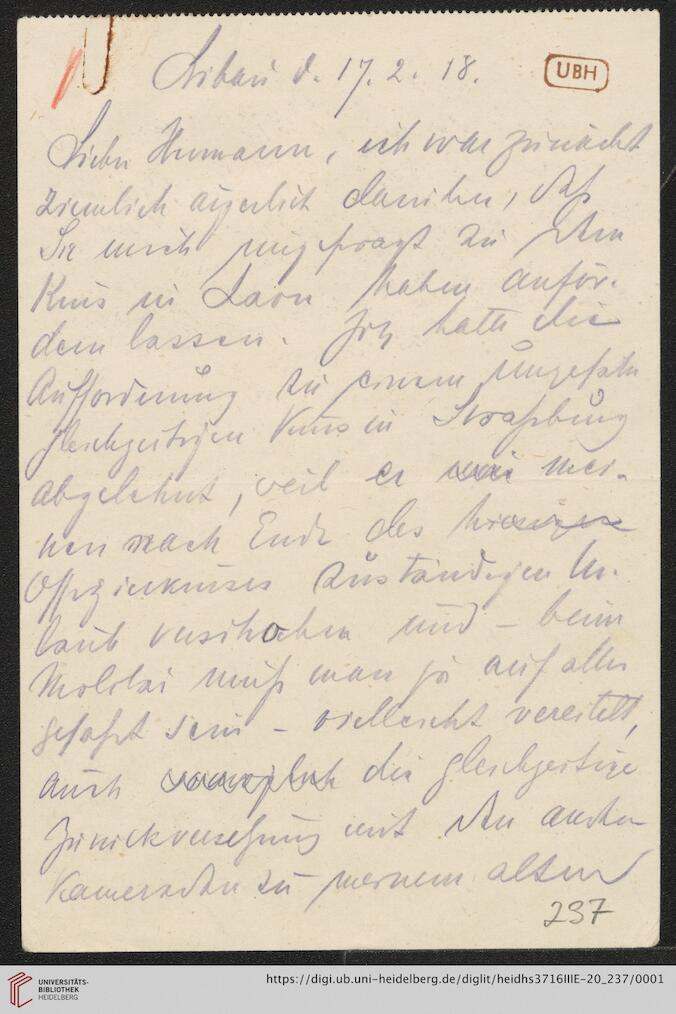 Libau d. 17. 2. 18.
UBH
Lieber Hermann, ich war zunächst
ziemlich ärgerlich darüber, daß
Sie mich ungefragt zu dem
Kurs in Laon haben anfor-
dern lassen. Ich hatte die
Aufforderung zu einem ungefähr
gleichzeitigen Kurs in Straßburg
abgelehnt, weil er mei-
nen nach Ende des
Offizierkurses zuständigen Ur-
laub verschoben und – beim
muß man ja auf alles
gefaßt sein – vielleicht vereitelt,
auch die gleichzeitige
Zurückversetzung mit den andern
Kameraden zu meinem alten
237
UNIVERSITÄTS-
BIBLIOTHEK
HEIDELBERG
https://digi.ub.uni-heidelberg.de/diglit/heidhs3716IIIE-20_237/0001